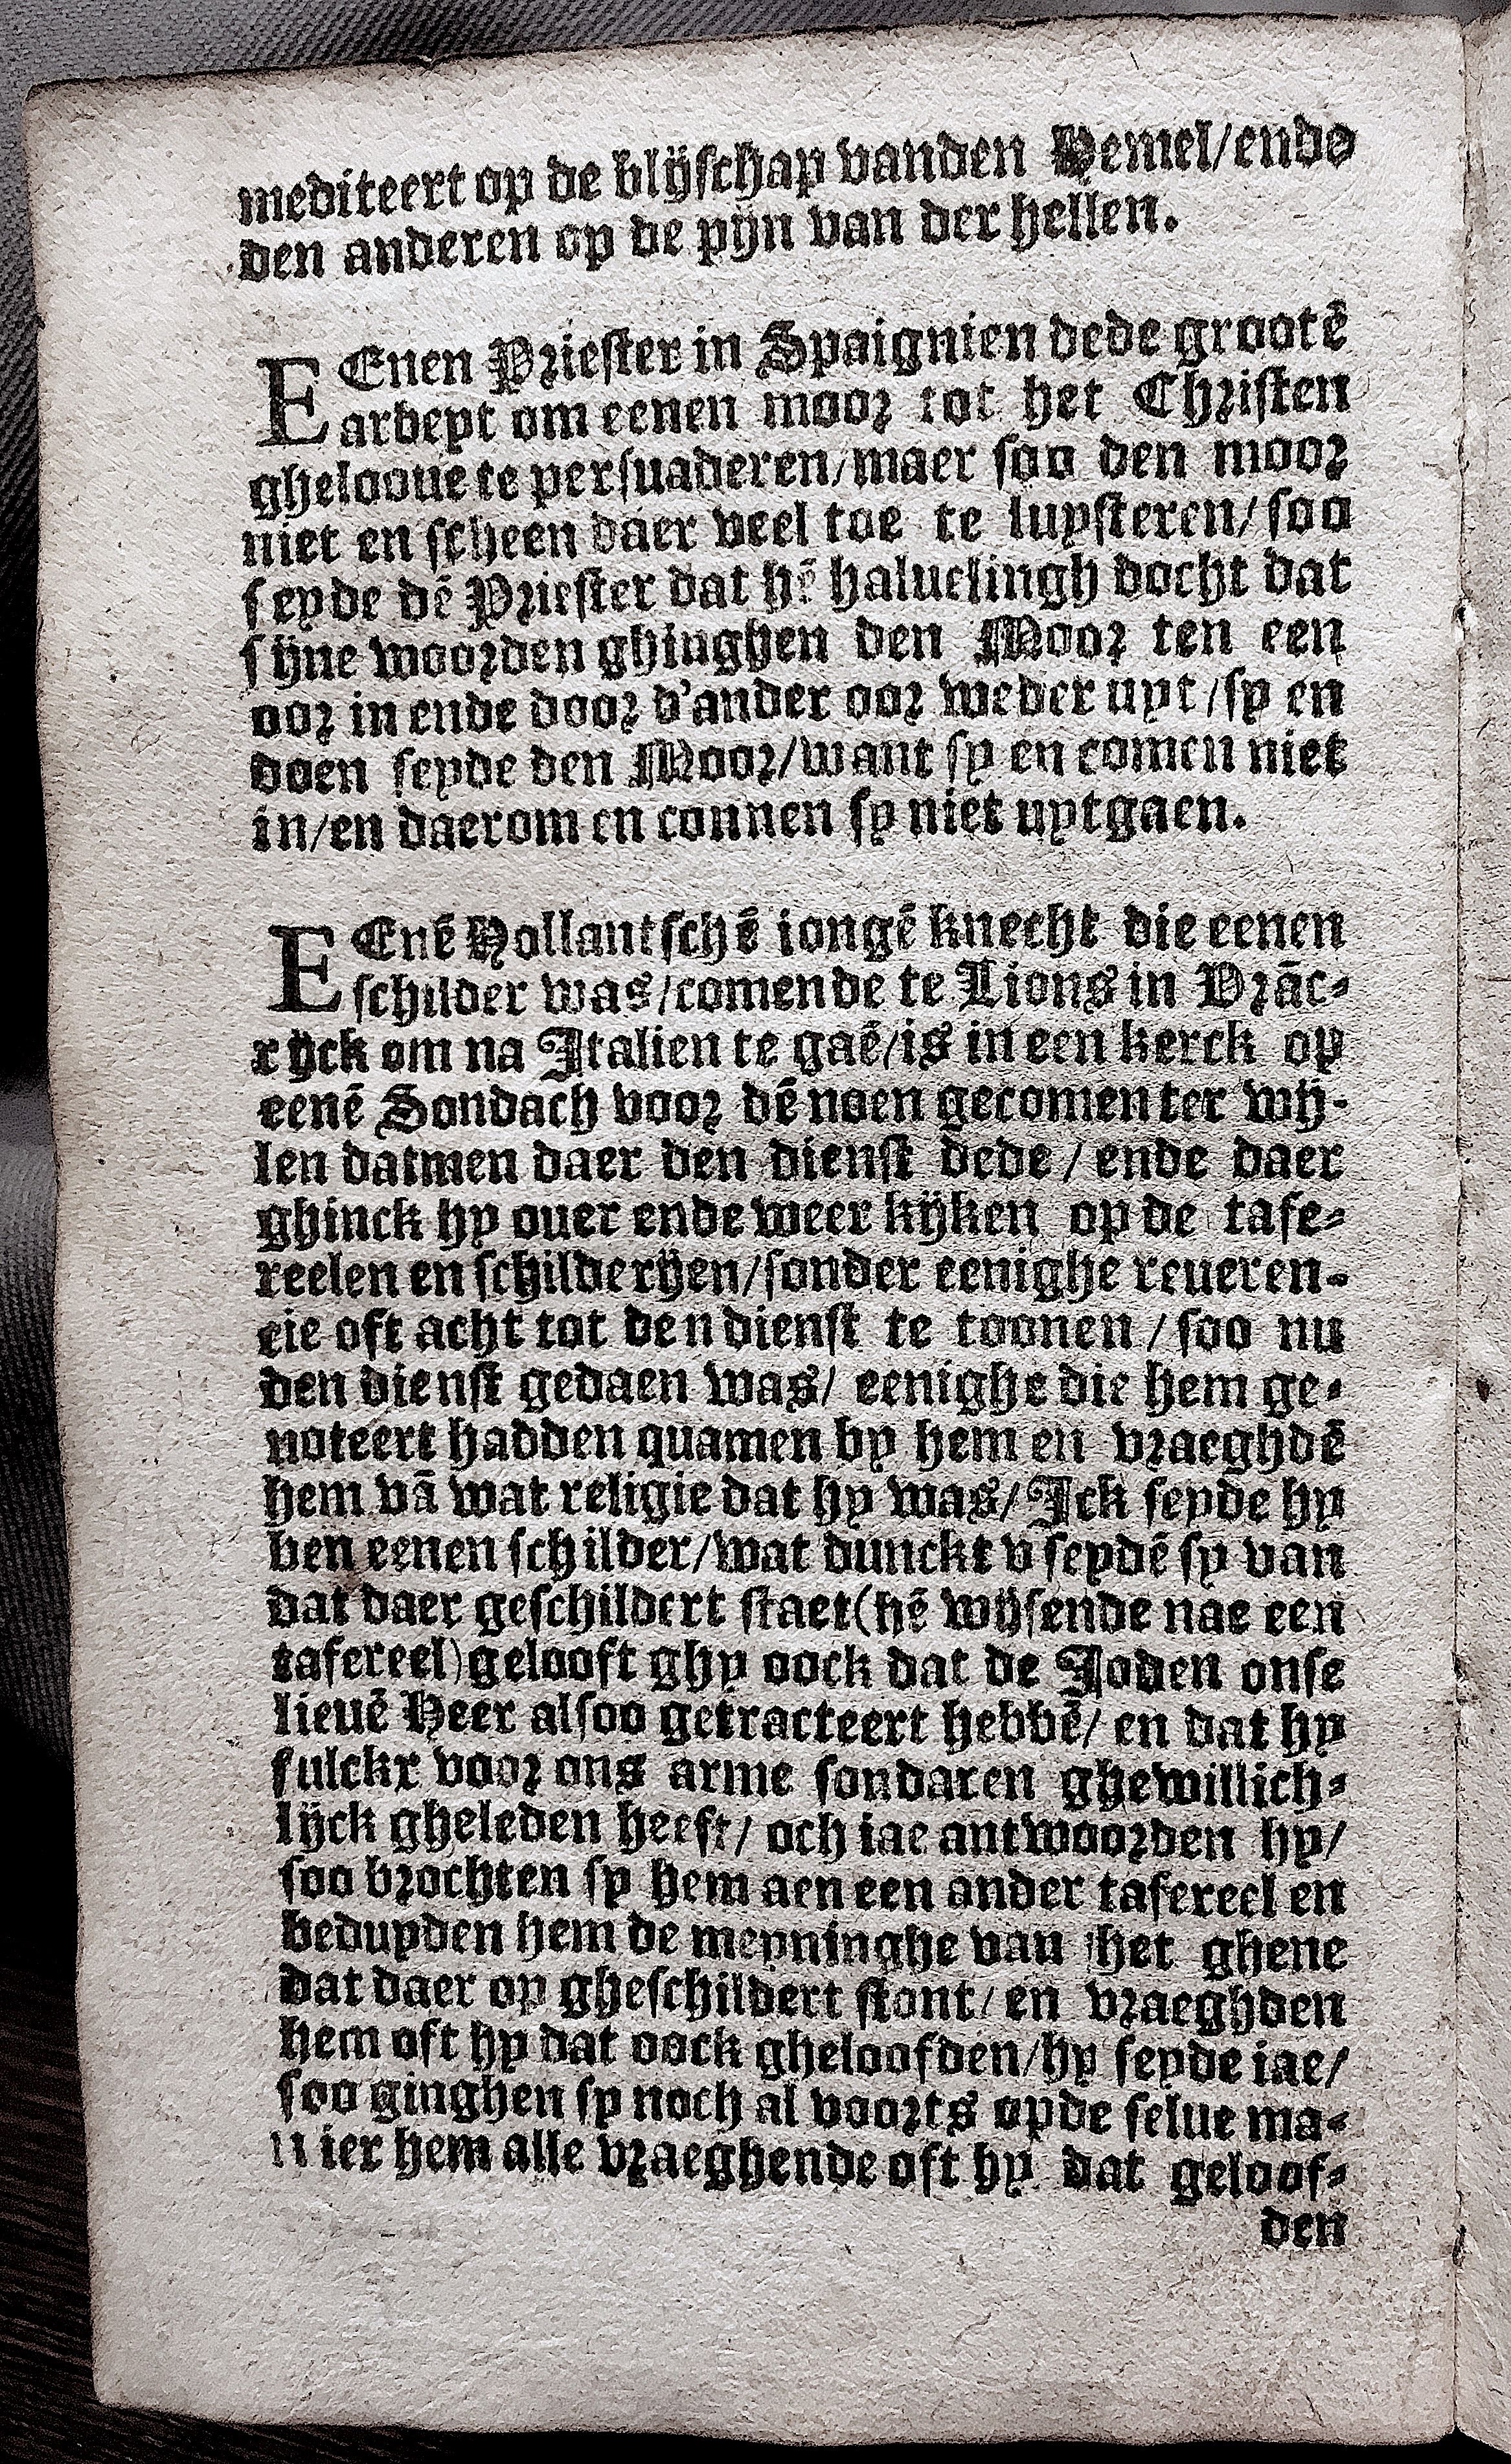 mediteert op de blijschap vanden Hemel/ende
den anderen op de pijn van der hellen.
EEnen Priester in Spaignien dede grootē
arbeyt om eenen moor tot het Christen
gheloove te persuaderen/maer soo den moor
niet en scheen daer veel toe te luysteren/soo
seyde dē Priester dat hē haluelingh docht dat
sijne woorden ghinghen den Moor ten een
oor in ende door d'ander oor weder uyt/sy en
doen seyde den Moor/want sy en comen niet
in/en daerom en connen sy niet uytgaen.
EEnē Hollantschē iongē knecht die eenen
schilder was/comende te Lions in Vrāc-
rijck om na Italien te gaē/is in een kerck op
eenē Sondach voor dē noen gecomen ter wij-
len datmen daer den dienst dede/ende daer
ghinck hy ouer ende weer kijken op de tafe-
reelen en schilderijen/sonder eenighe reueren-
cie oft acht tot den dienst te toonen/soo nu
den dienst gedaen was/eenighe die hem ge-
noteert hadden quamen by hem en vraeghdē
hem vā wat religie dat hy was/Ick seyde hy
ben eenen schilder/wat dunckt v seydē sy van
dat daer geschildert staet(hē wijsende nae een
tafereel)gelooft ghy oock dat de Joden onse
lieuē Heer alsoo getracteert hebbē/en dat hy
sulckx voor ons arme sondaren ghewillich-
lijck gheleden heeft/och iae antwoorden hy/
soo brochten sy hem aen een ander tafereel en
beduyden hem de meyninghe van het ghene
dat daer op gheschildert stont/en vraeghden
hem oft hy dat oock gheloofden/hy seyde iae/
soo ginghen sy noch al voorts opde selue ma-
nier hem alle vraeghende oft hy dat geloof-
den